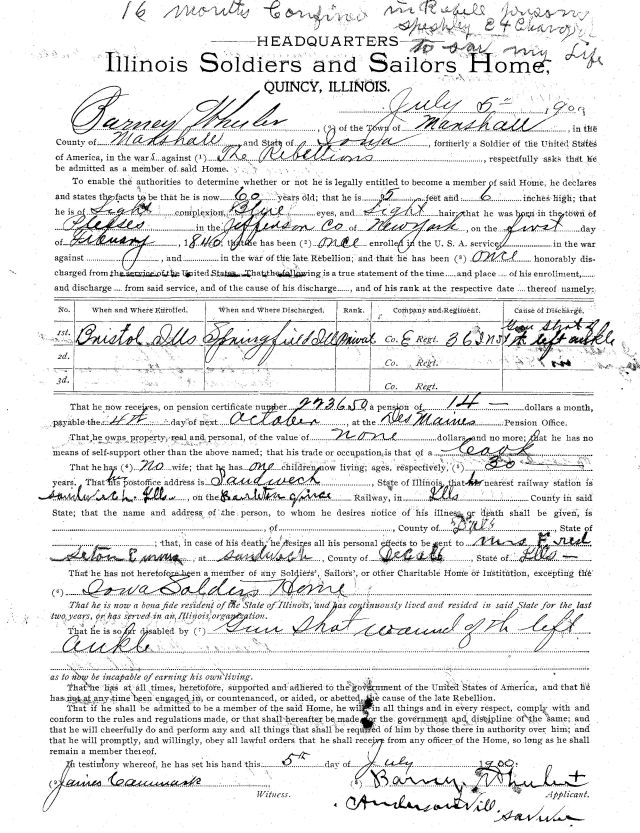 16 months Confined in Rebell prison
to sav my Life
HEADQUARTERS
Illinois Soldiers and Sailors Home,
QUINCY, ILLINOIS.
July 5th 1900
Barney Wheeler, (2) of the Town of Marshall, in the
County of Marshall, and State of Iowa, formerly a Soldier of the United States
of America, in the war against (1) The Rebellions, respectfully asks that he
be admitted as a member of said Home.
To enable the authorities to determine whether or not he is legally entitled to become a member of said Home, he declares
and states the facts to be that he is now 60 years old; that he is 5 feet and 6 inches high; that
he is of Light complexion, Blue eyes, and Light hair; that he was born in the town of
in the Jefferson Co of New York, on the first day
of Febuary, 1840 that he has been (2) once enrolled in the U. S. A. service, in the war
against , and in the war of the late Rebellion; and that he has been (3) once honorably dis-
charged from the service of the United States. That the following is a true statement of the time and place of his enrollment,
and discharge from said service, and of the cause of his discharge, and of his rank at the respective date thereof, namely:
No. When and Where Enrolled. When and Where Discharged. Rank. Company and Regiment. Cause of Discharge.
1st. Bristol Ills Springfield Ill Privat Co. E Regt. 36 Inft Gun Shot left ankle
2d. Co. Regt.
3d. Co. Regt.
That he now receives, on pension certificate number 223650 a pension of 14 — dollars a month,
payable the 4th day of next October, at the Des Maines Pension Office.
That he owns property, real and personal, of the value of none dollars and no more; that he has no
means of self-support other than the above named; that his trade or occupation is that of a Cook
That he has (4) no wife; that he has one children now living; ages, respectively, (5) 30
years. That his postoffice address is Sandwich, State of Illinois, that his nearest railway station is
Sandwich Ills, on the Railway, in Ills County in said
State; that the name and address of the person, to whom he desires notice of his illness or death shall be given, is
, of , County of , State of
; that, in case of his death, he desires all his personal effects to be sent to Mrs Fred
Seton Emma, at Sandwich, County of DeCalb, State of Ills —
That he has not heretofore been a member of any Soldiers', Sailors', or other Charitable Home or Institution, excepting the
(6) Iowa Solders Home
That he is now a bona fide resident of the State of Illinois, and has continuously lived and resided in said State for the last
two years, or has served in an Illinois organization.
That he is so far disabled by (7) Gun Shot wound of the left
ankle
as to now be incapable of earning his own living.
That he has at all times, heretofore, supported and adhered to the government of the United States of America, and that he
has not at any time been engaged in, or countenanced, or aided, or abetted, the cause of the late Rebellion.
That if he shall be admitted to be a member of the said Home, he will in all things and in every respect, comply with and
conform to the rules and regulations made, or that shall hereafter be made for the government and discipline of the same; and
that he will cheerfully do and perform any and all things that shall be required of him by those there in authority over him; and
that he will promptly, and willingly, obey all lawful orders that he shall receive from any officer of the Home, so long as he shall
remain a member thereof.
In testimony whereof, he has set his hand this 5th day of July 1900.
James Cammack Barney Wheeler
Witness. Applicant.
Andersonvill